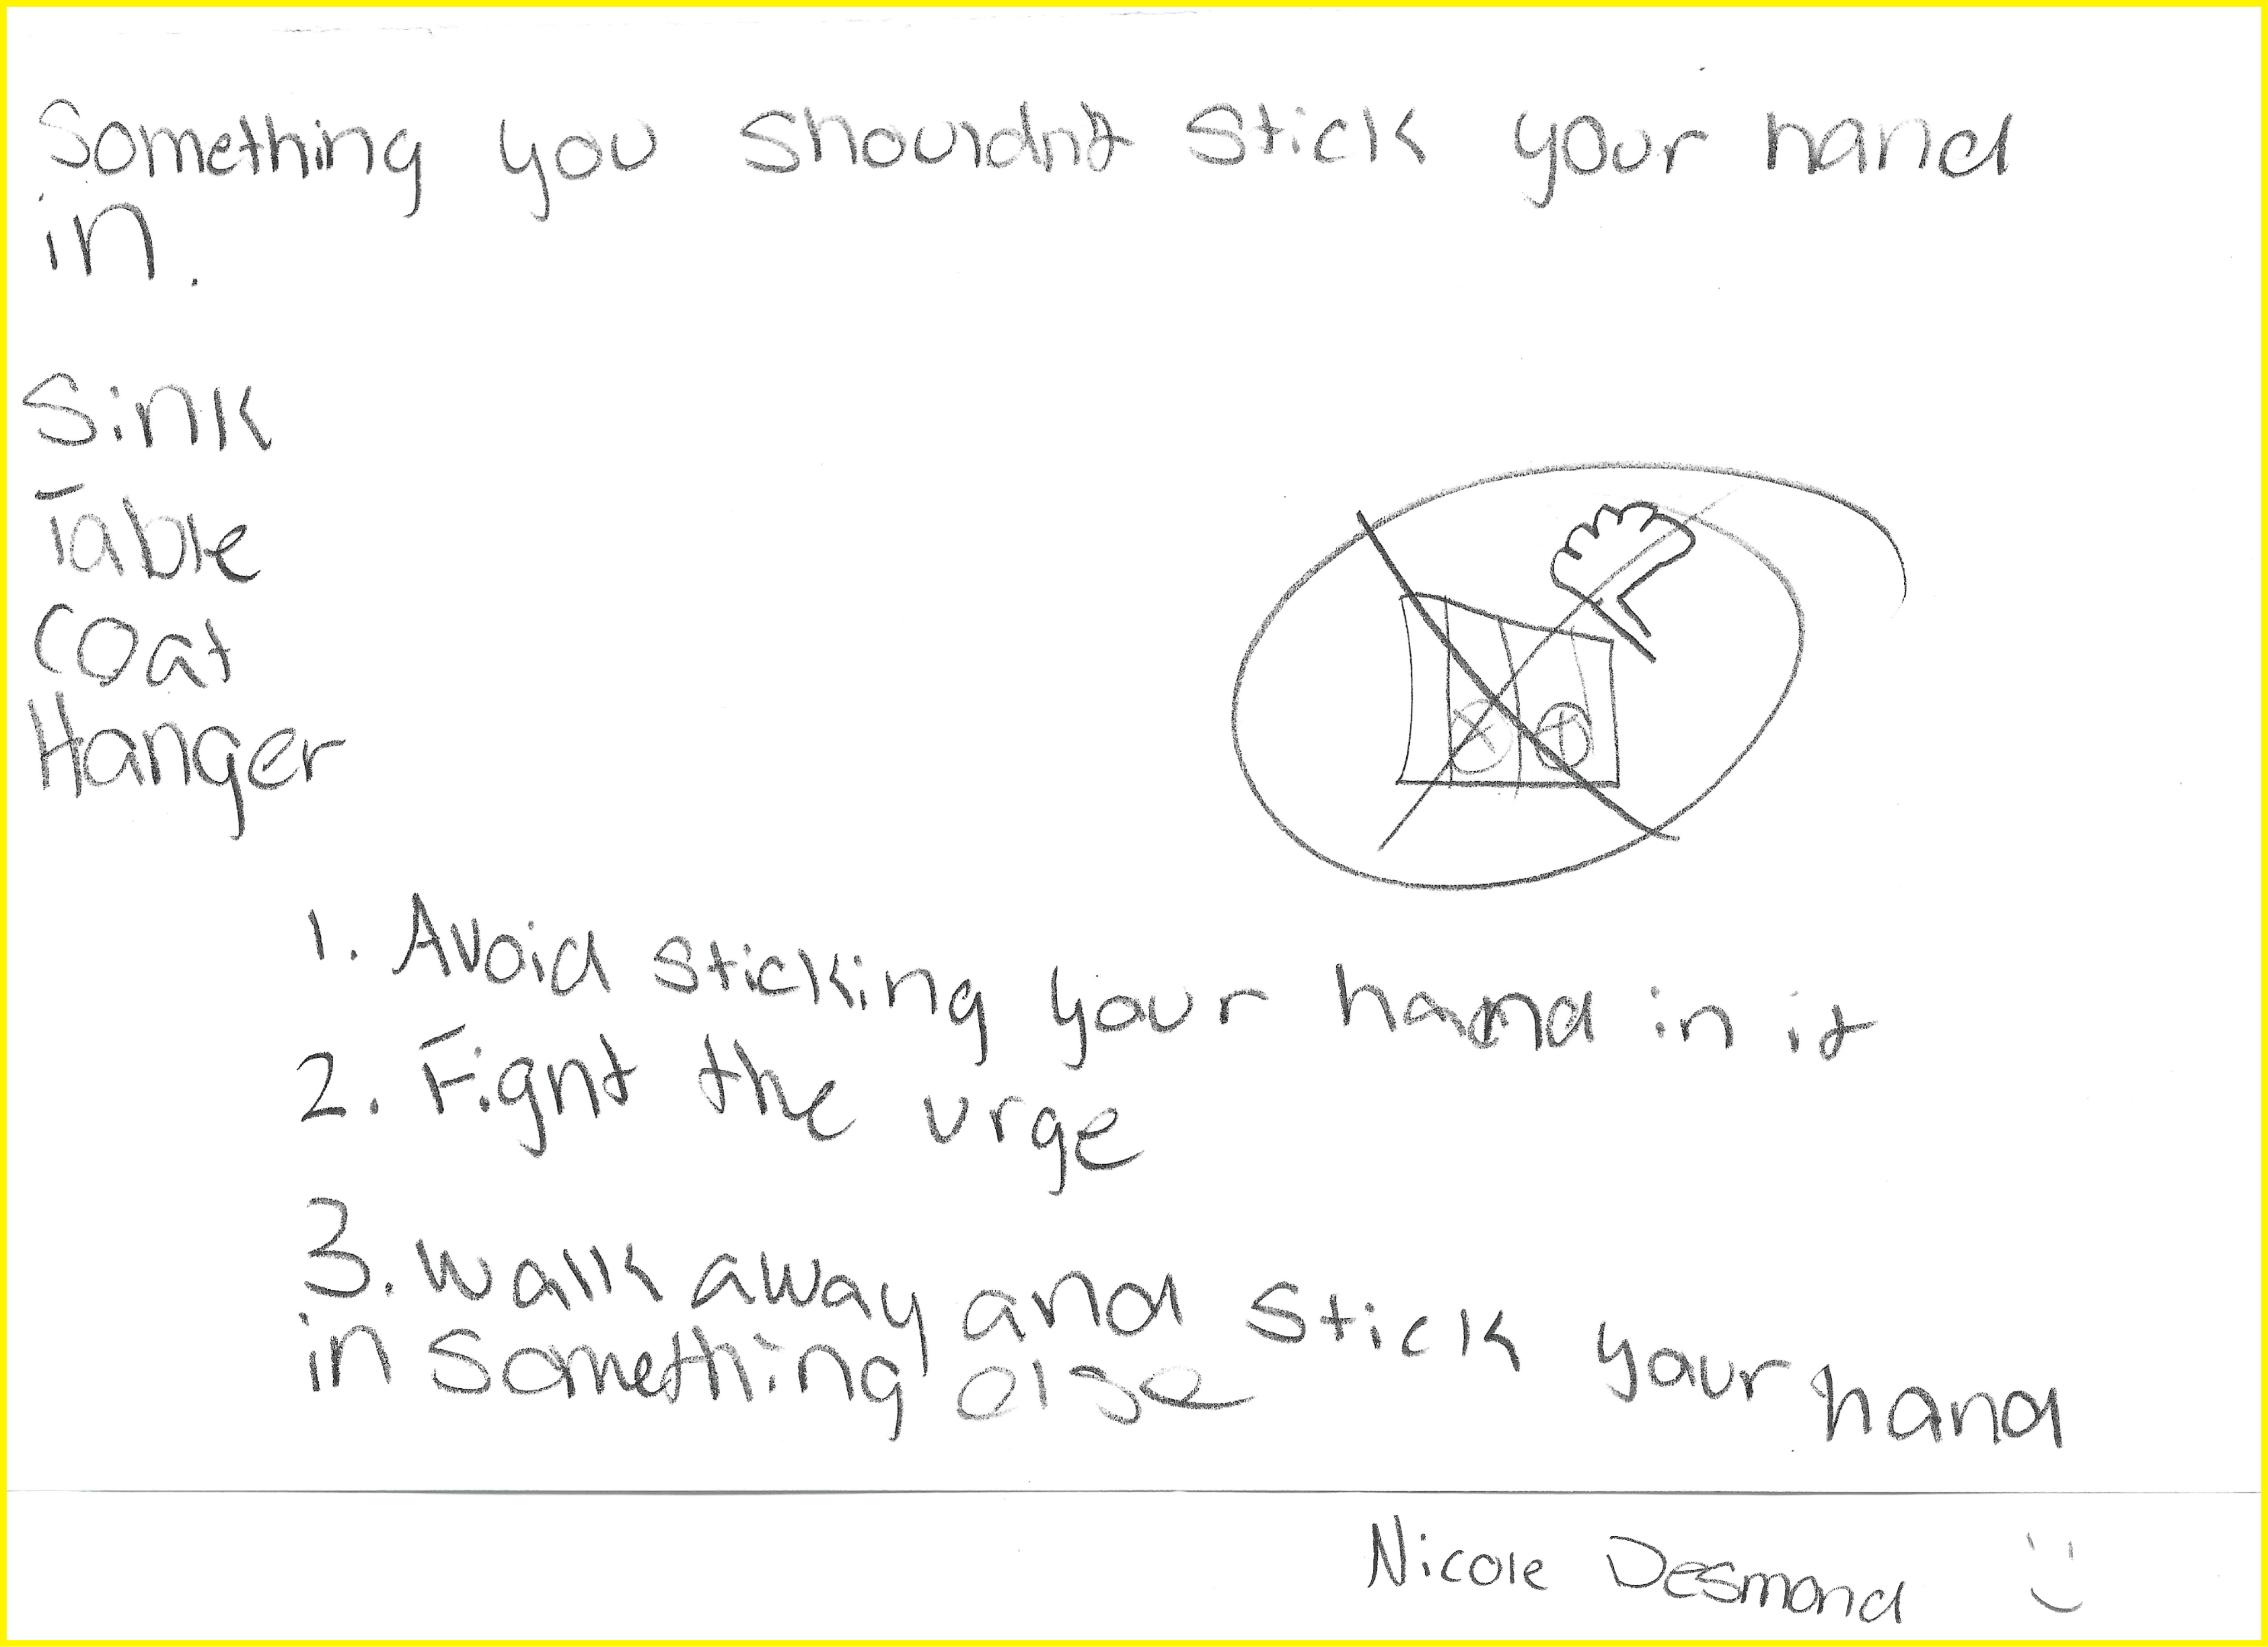 Something you shouldn't stick your hand
in.
Sink
Table
Coat
Hanger
1. Avoid sticking your hand in it
2. Fight the urge
3. Walk away and stick your hand
in something else
Nicole Desmond